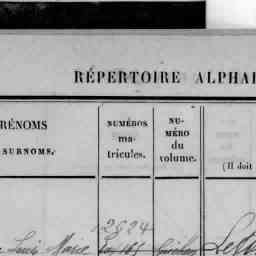 RÉPERTOIRE ALPHA
RÉNOMS
SURNOMS.
NUMÉROS
ma-
tricules.
NU-
MÉRO
du
volume.
(Il doit
12624
Louis Marie